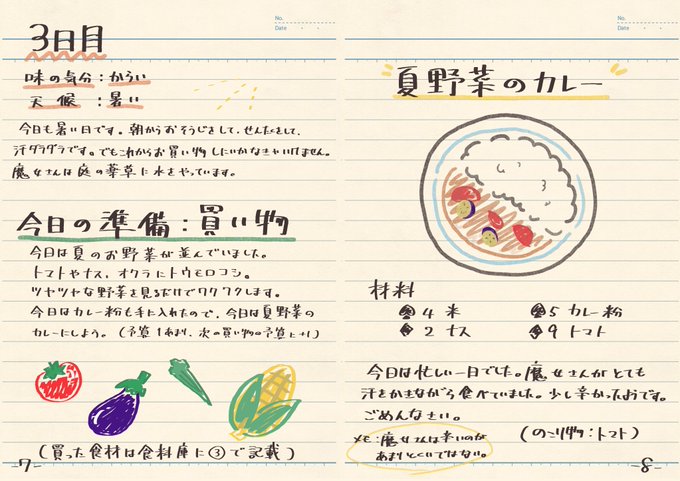 No.
Date ・ ・
3日目
味の気分：からい
天候：暑い
今日も暑い日です。朝からおそうじをして、せんたくをして、
汗ダラダラです。でもこれからお買い物しにいかなきゃいけません。
魔女さんは庭の薬草に水をやっています。
今日の準備：買い物
今日は夏のお野菜が並んでいました。
トマトやナス、オクラにトウモロコシ。
ツヤツヤな野菜を見るだけでワクワクします。
今日はカレー粉も手に入れたので、今日は夏野菜の
カレーにしよう。（予算1あまり、次の買い物の予算に+1）
（買った食材は食料庫に③で記載）
-7-
No.
Date ・ ・
夏野菜のカレー
材料
♣4 米 ♣5 カレー粉
♠2 ナス ♠9 トマト
今日は忙しい一日でした。魔女さんがとても
汗をかきながら食べていました。少し辛かったようです。
ごめんなさい。
（のこり物：トマト）
メモ：魔女さんは辛いのが
あまりとくいではない。
-8-